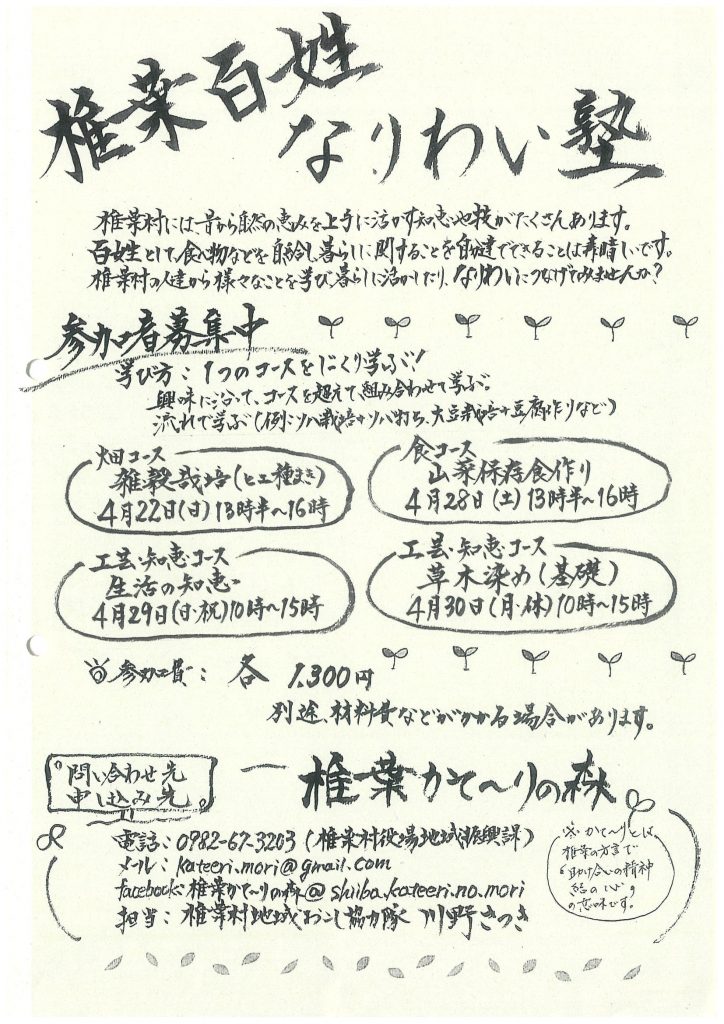 椎葉百姓
なりわい塾
椎葉村には昔から自然の恵みを上手に活かす知恵や技がたくさんあります。
百姓として、食べ物などを自給し、暮らしに関することを自前でできることは素晴しいです。
椎葉村の人達から様々なことを学び、暮らしに活かしたり、なりわいにつなげてみませんか？
参加者募集中
学び方：1つのコースをじっくり学ぶ！
興味に沿って、コースを超えて組み合わせて学ぶ。
流れで学ぶ（例：ソバ栽培＋ソバ打ち、大豆栽培＋豆腐作りなど）
畑コース
雑穀栽培（ヒエ種まき）
4月22日（日）13時半〜16時
食コース
山菜保存食作り
4月28日（土）13時半〜16時
工芸・知恵コース
生活の知恵
4月29日（日・祝）10時〜15時
工芸・知恵コース
草木染め（基礎）
4月30日（月・休）10時〜15時
参加費：各 1,300円
別途、材料費などがかかる場合があります。
問い合わせ先
申し込み先
椎葉かて〜りの森
電話：0982-67-3203（椎葉村役場地域振興課）
メール：kateeri.mori@gmail.com
facebook：椎葉かて〜りの森@shiiba.kateeri.no.mori
担当：椎葉村地域おこし協力隊 川野さつき
※かて〜りとは、
椎葉の方言で
“助け合いの精神
結の心”
の意味です。